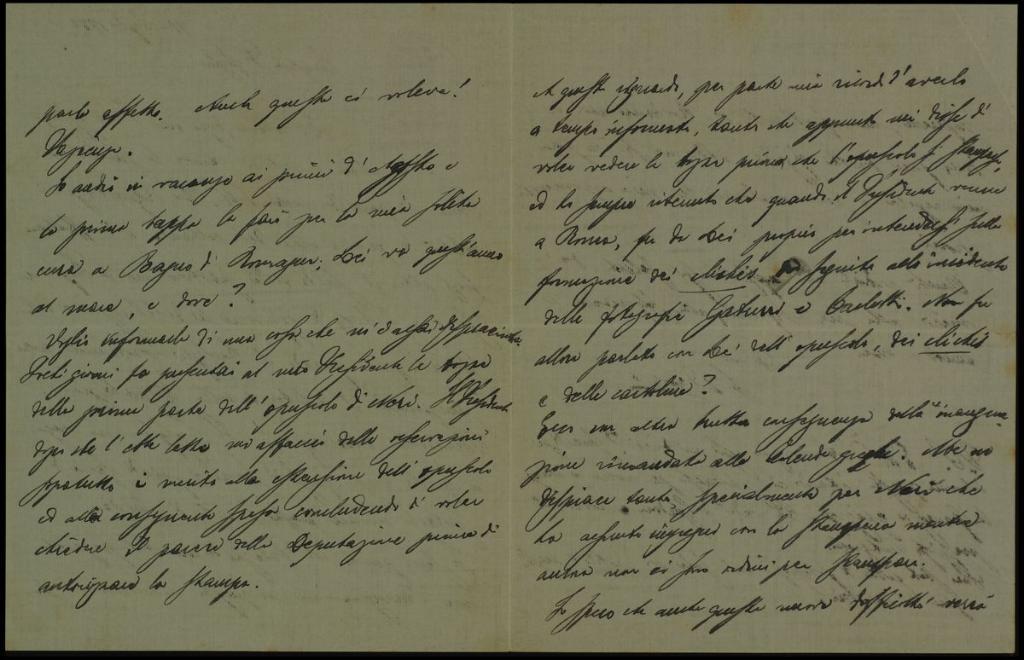 parlo affetto. Anche questa ci voleva!
Pazienza.
Io andrò in vacanza ai primi d'Agosto e
la prima tappa la farò per la mia solita
cura a Bagno di Romagna. Lei va quest'anno
al mare, e dove?
Voglio informarla di una cosa che mi dà assai dispiacere.
Dieci giorni fa presentai al nostro Presidente le bozze
della prima parte dell'opuscolo di Neri. Il Presidente
dopo che l'ebbe letto mi affacciò delle osservazioni
soprattutto in merito alla estensione dell'opuscolo
ed alla conseguente spesa concludendo di voler
chiedere il parere della Deputazione prima di
autorizzare la stampa.
A questo riguardo, per parte mia ricordo d'averlo
a tempo informato, tanto che appunto mi disse di
voler vedere le bozze prima che l'opuscolo si stampasse,
ed ho sempre ritenuto che quando il Presidente venne
a Roma, fu da Lei proprio per intendersi sulla
formazione dei clichés in seguito all'incidente
delle fotografie e Carlotti. Non fu
allora parlato con Lei dell'opuscolo, dei clichés
e delle cartoline?
Ecco un altra brutta conseguenza della inaugura-
zione rimandata alle Calende greche. Me ne
dispiace tanto specialmente per Neri che
ha assunto impegni con la Stamperia mentre
ancora non ci sono ordini per stampare.
Io spero che anche questa nuova difficoltà verrà